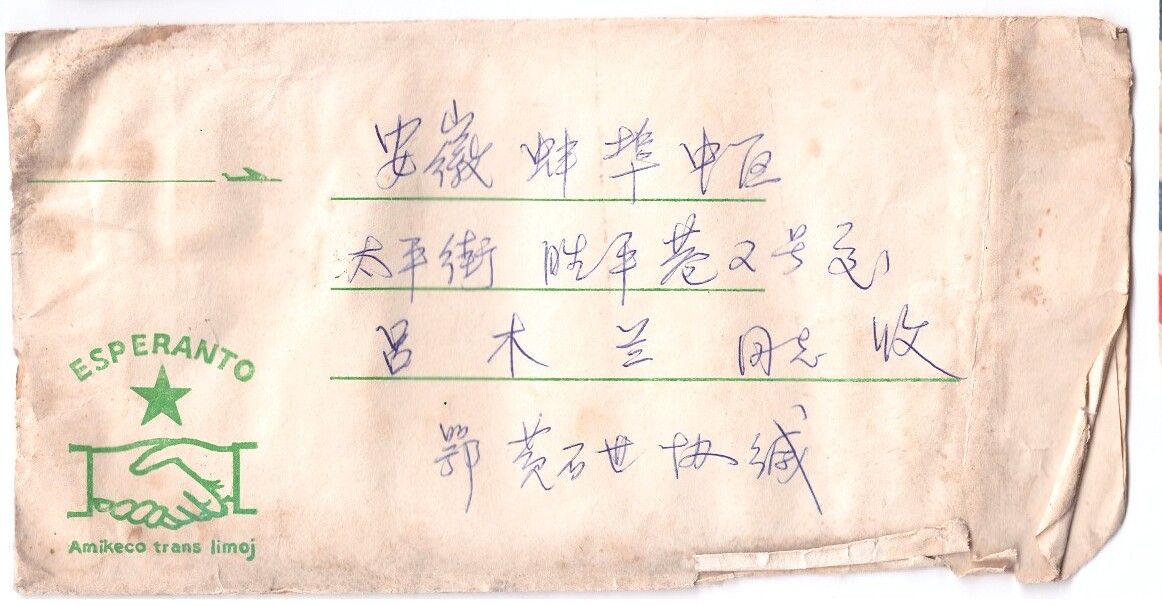 安徽 蚌埠中区
太平街 胜平巷又号交
吕木兰 同志 收
鄂黄石世协缄
ESPERANTO
Amikeco trans limoj